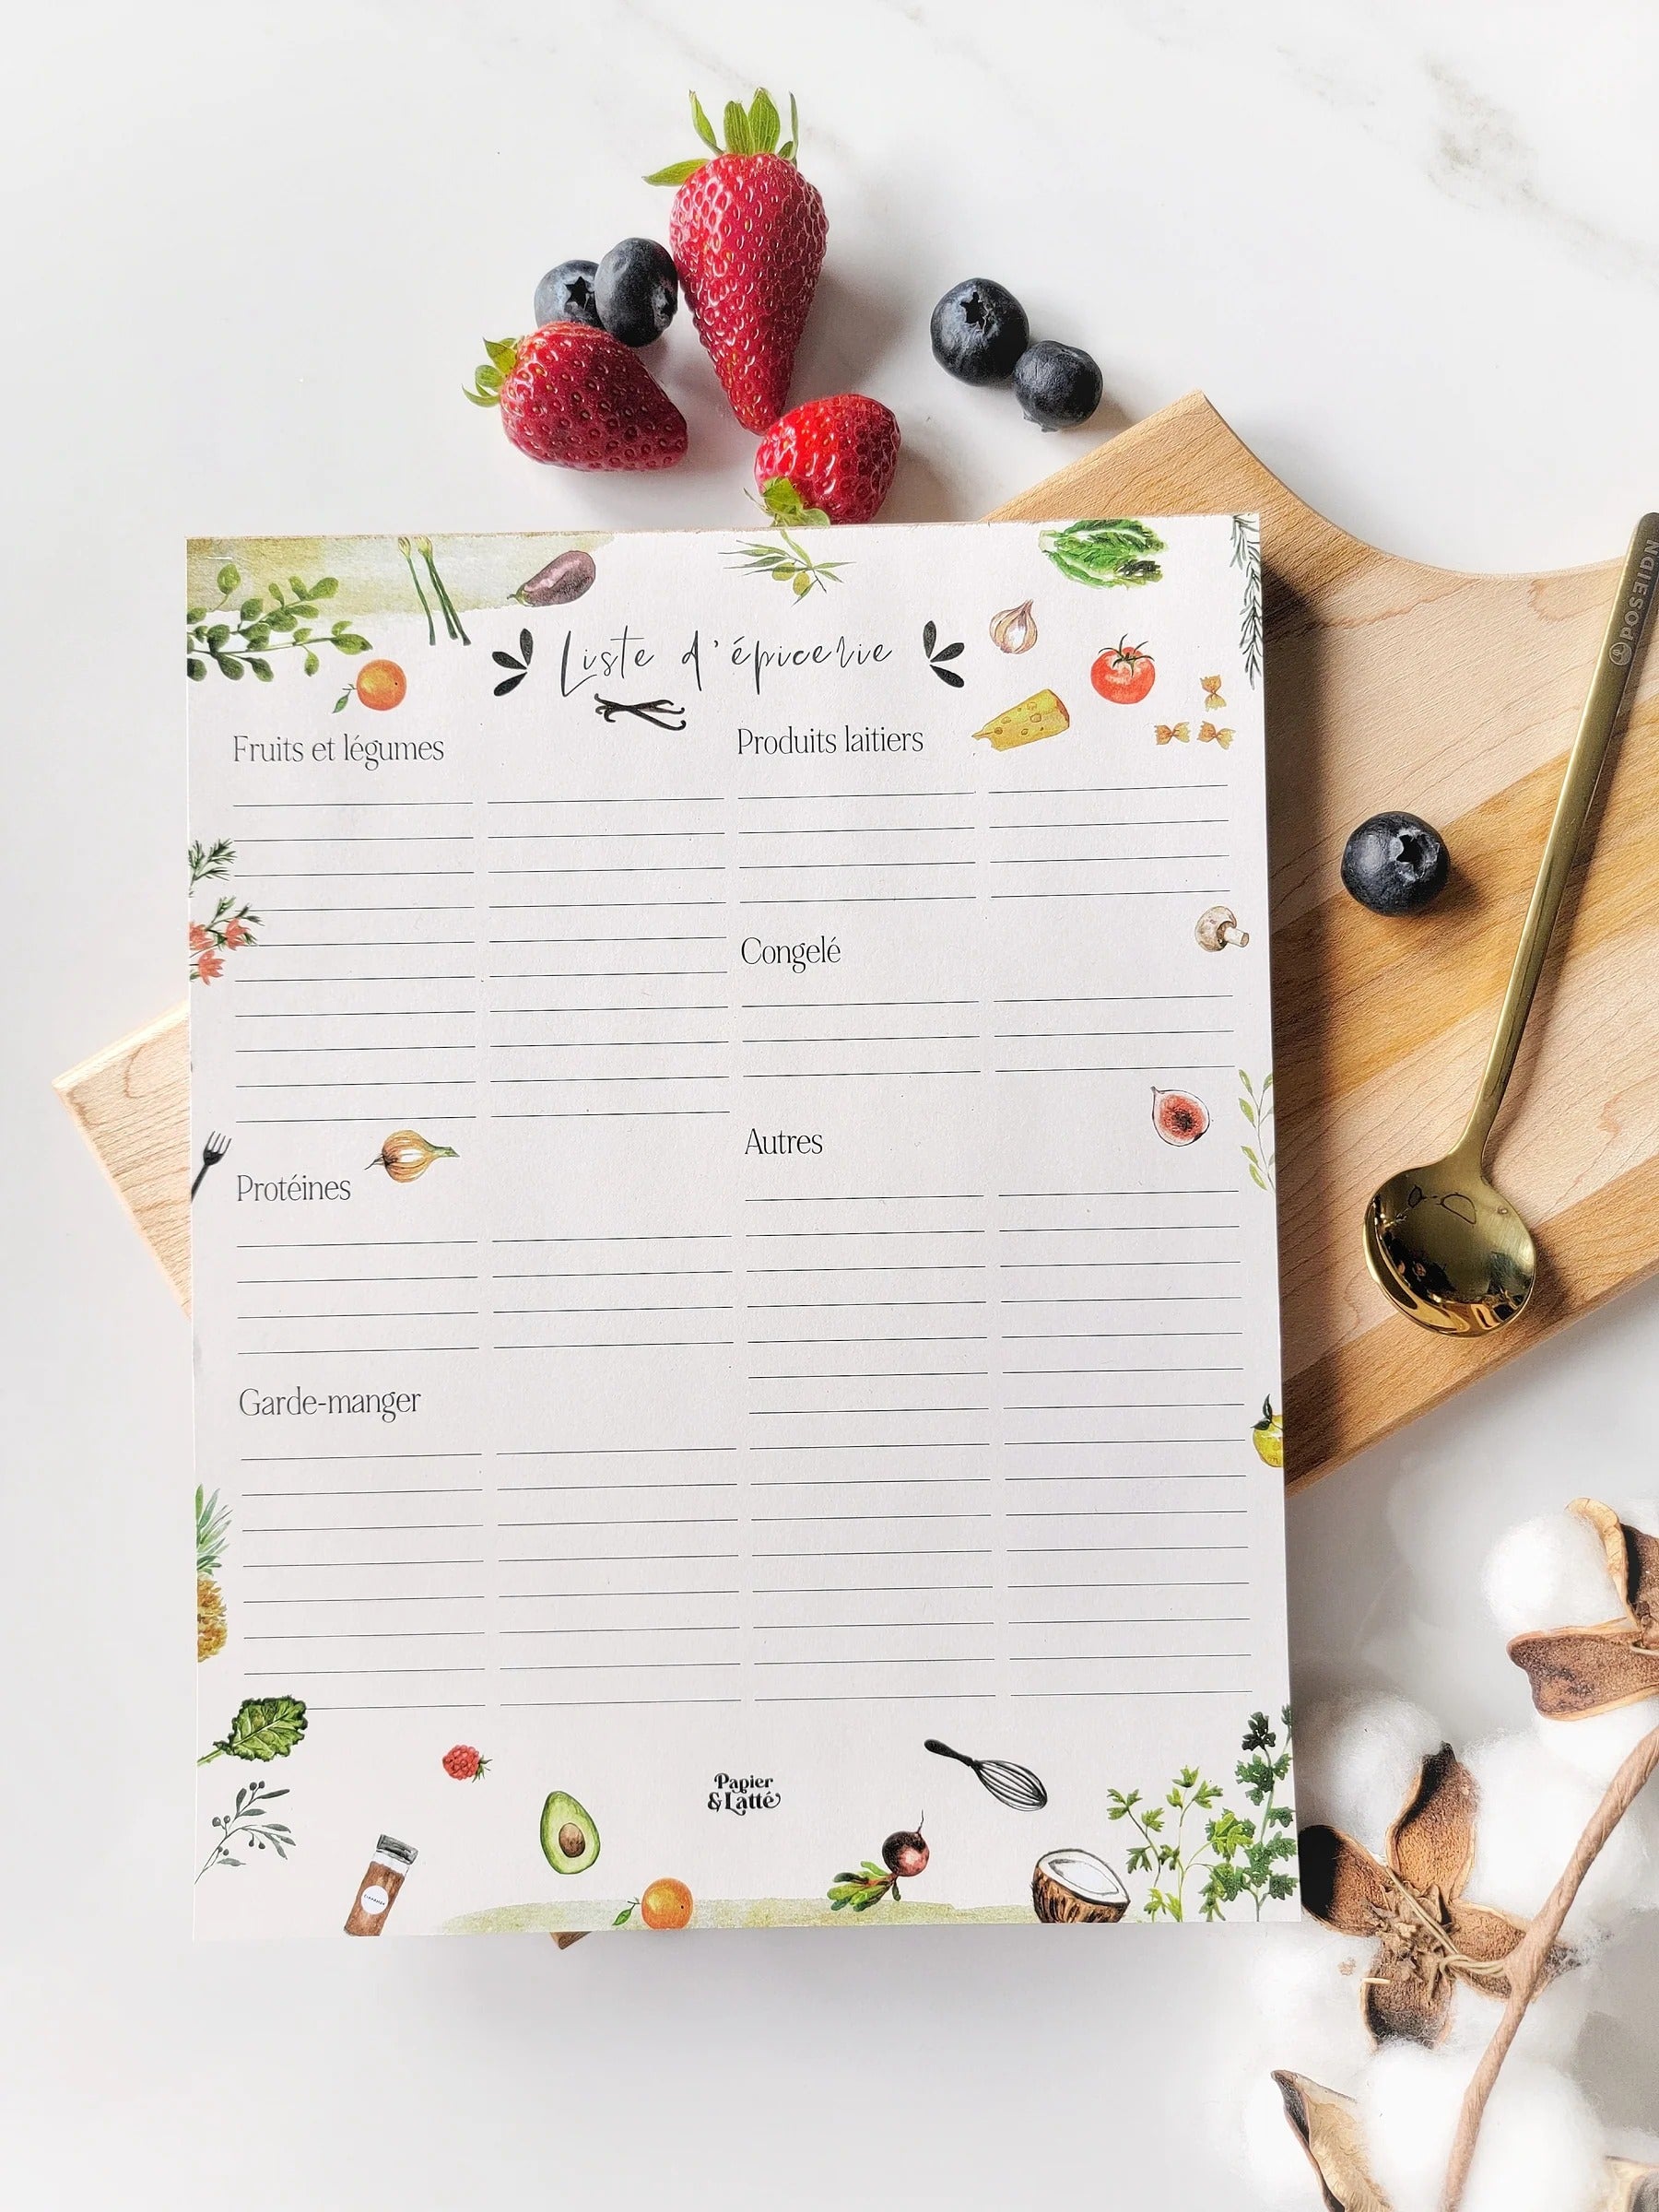 Liste d'épicerie
Fruits et légumes
Produits laitiers
Congelé
Autres
Protéines
Garde-manger
Papier
& Latté
POSEIDN